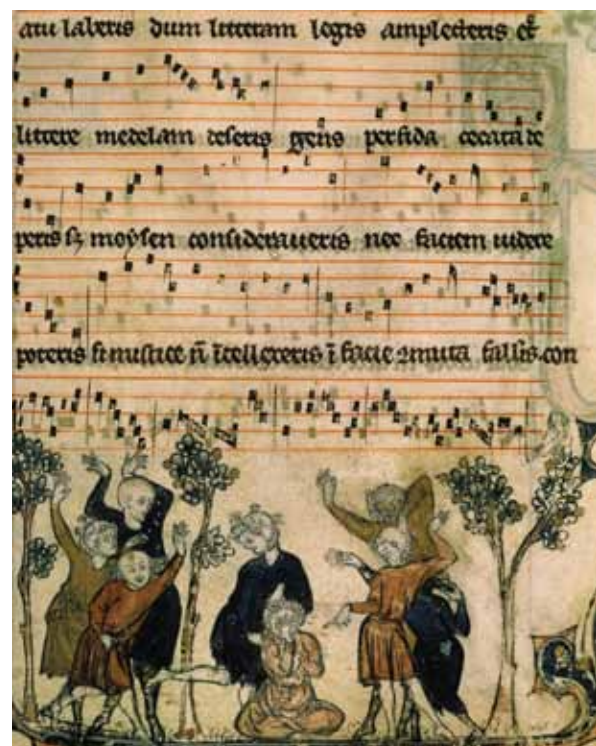 atu laberis dum litteram legis amplecteris et
littere medelam deseris gens perfida cecata de
peris si moysen consideraueris nec faciem uidere
poteris si mistice n̄ ītellexeris ī facie ꝯmuta fallis con